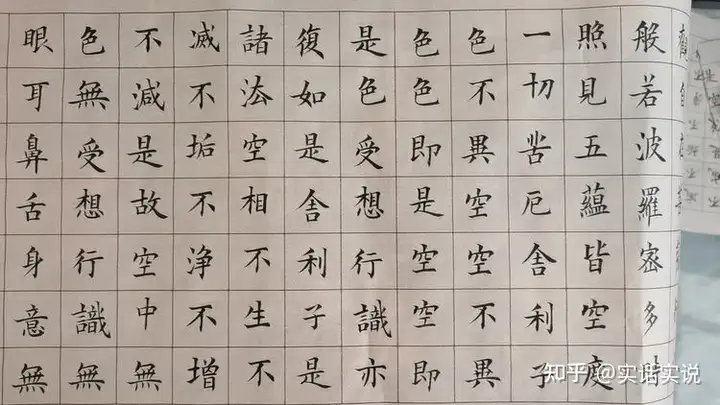 般若波羅密多
照見五蘊皆空度
一切苦厄舍利子
色不異空空不異
色色即是空空即
是色受想行識亦
復如是舍利子是
諸法空相不生不
滅不垢不淨不增
不減是故空中無
色無受想行識無
眼耳鼻舌身意無
知乎 @实话实说